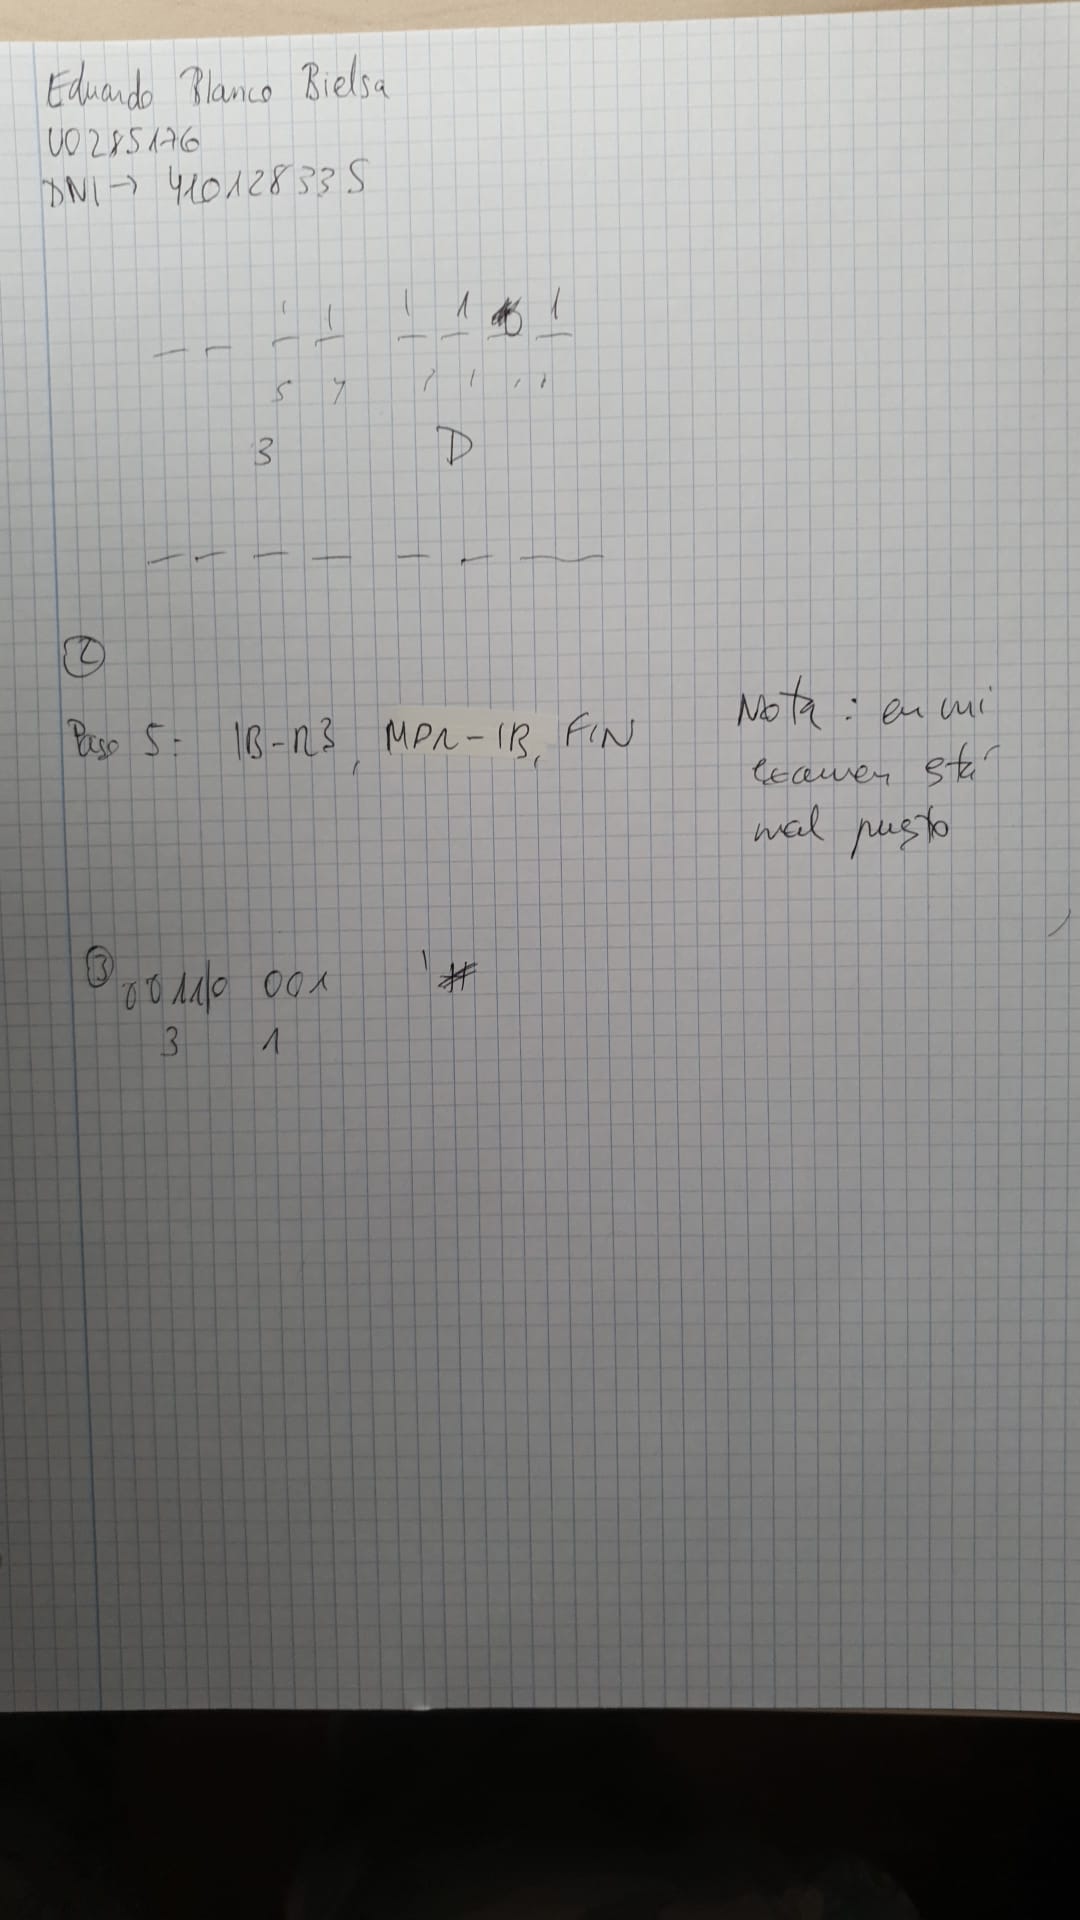 Eduardo Blanco Bielsa
UO285176
DNI → 41012833S
1 1 1 1 0 1
5 4
3 D
②
Paso 5: IB-R3, MDR-IB, FIN
Nota: en mi
examen stá
mal puesto
③ 0011/0 001
3 1